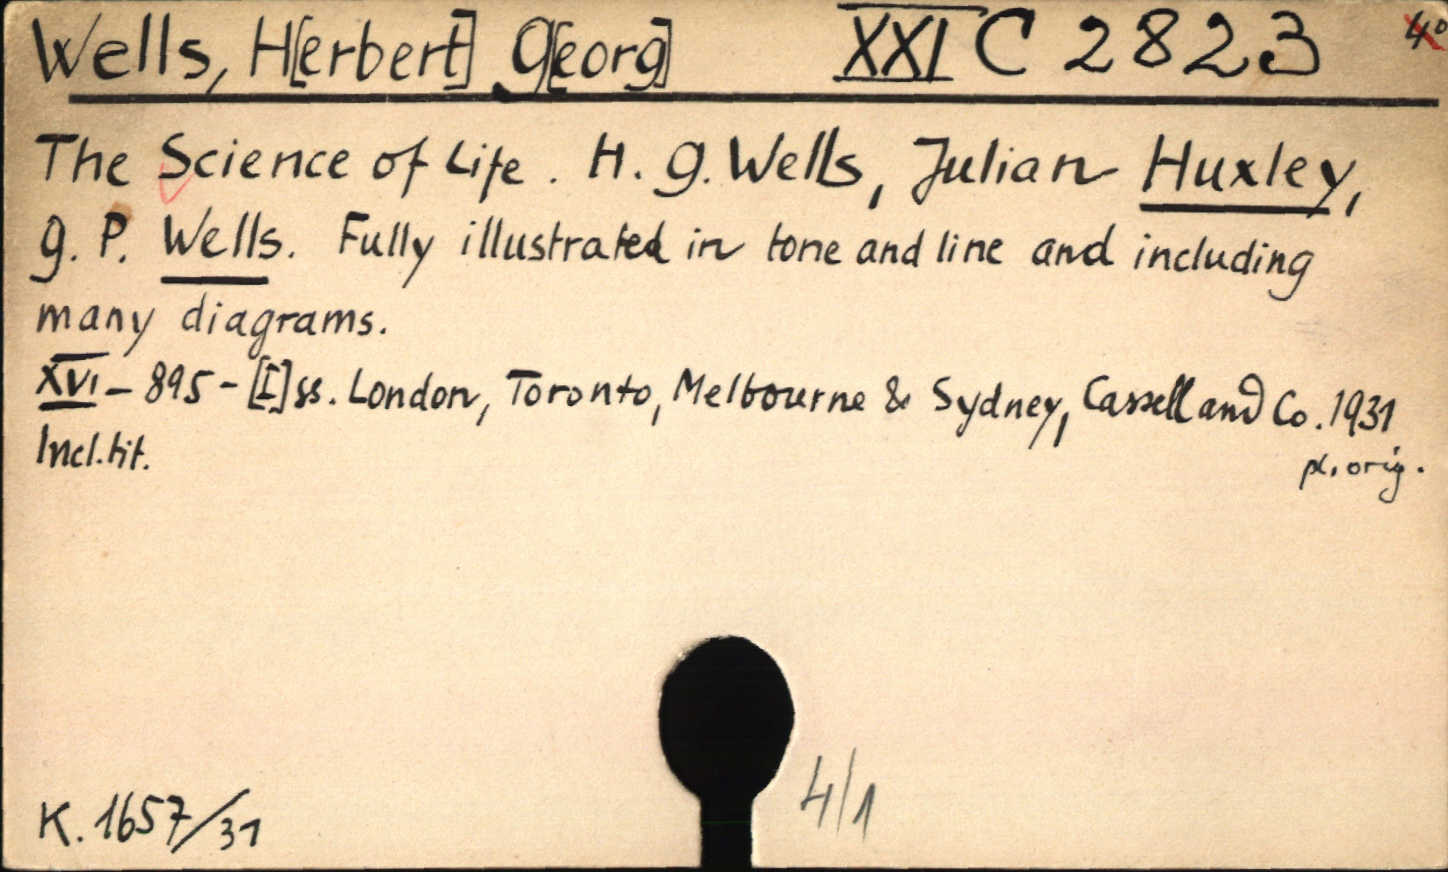 Wells, H[erbert] G[eorg] XXI C 2823 4°
The Science of Life. H. G. Wells, Julian Huxley,
G. P. Wells. Fully illustrated in tone and line and including
many diagrams.
XVI – 895 – [I] ss. London, Toronto, Melbourne & Sydney, Cassell and Co. 1931
Incl. tit. pł. oryg.
K. 1657/31
4/1